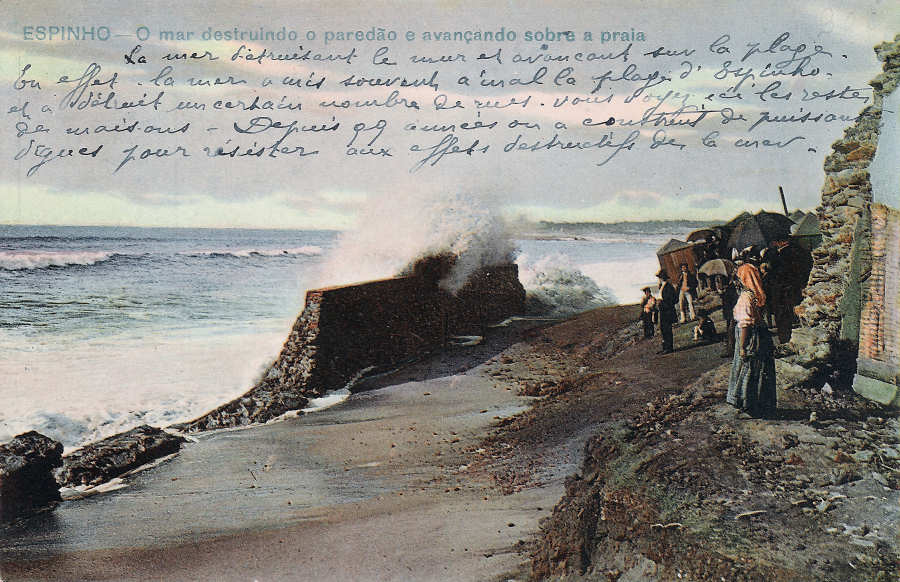 ESPINHO — O mar destruindo o paredão e avançando sobre a praia
La mer détruisant le mur et avançant sur la plage.
En effet la mer a mis souvent à mal la plage d'Espinho.
et a détruit un certain nombre de rues. vous voyez ici les restes
des maisons - Depuis années on a construit de puissans
digues pour résister aux effets destructifs de la mer.